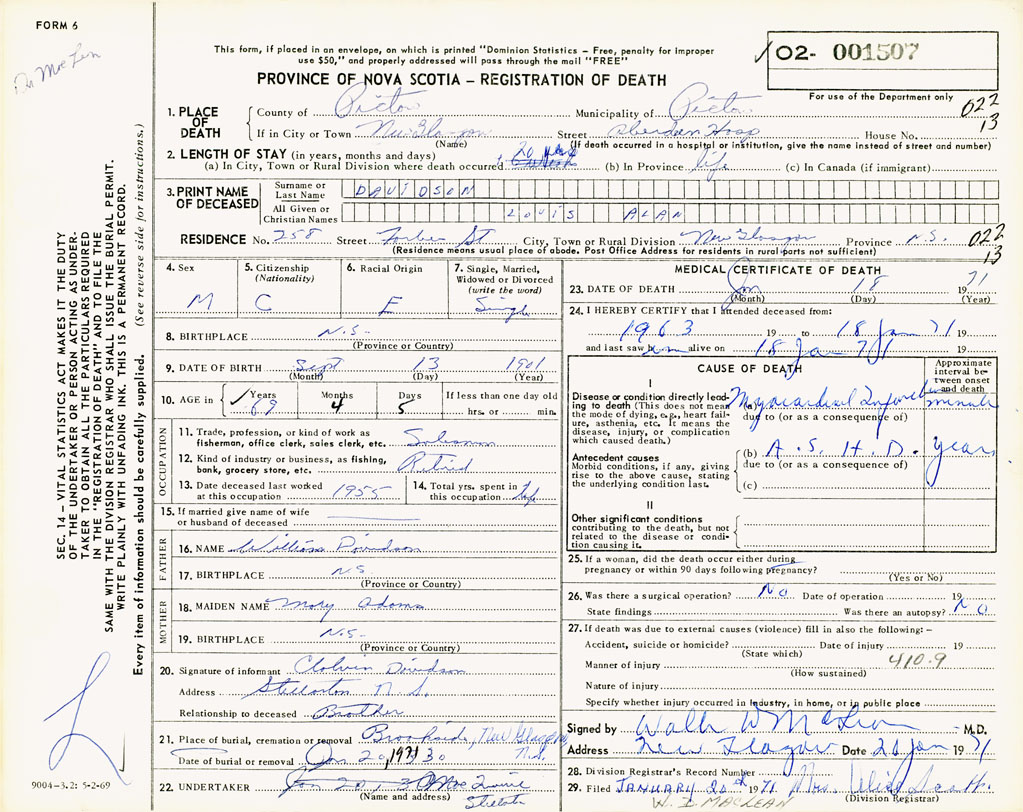 FORM 6
Dr MacLean
This form, if placed in an envelope, on which is printed "Dominion Statistics – Free, penalty for improper
use $50," and properly addressed will pass through the mail "FREE"
PROVINCE OF NOVA SCOTIA – REGISTRATION OF DEATH
02- 001507
For use of the Department only
022
13
1. PLACE OF DEATH
County of Pictou Municipality of Pictou
If in City or Town New Glasgow Street Aberdeen Hosp House No.
(Name) (If death occurred in a hospital or institution, give the name instead of street and number)
2. LENGTH OF STAY (in years, months and days)
(a) In City, Town or Rural Division where death occurred 20 (b) In Province life (c) In Canada (if immigrant)
3. PRINT NAME OF DECEASED
Surname or Last Name DAVIDSON
All Given or Christian Names LOUIS ALAN
RESIDENCE No. 258 Street Forbes St City, Town or Rural Division New Glasgow Province N.S.
022
13
(Residence means usual place of abode. Post Office Address for residents in rural parts not sufficient)
4. Sex M
5. Citizenship (Nationality) C
6. Racial Origin E
7. Single, Married, Widowed or Divorced (write the word) Single
8. BIRTHPLACE N.S.
(Province or Country)
9. DATE OF BIRTH Sept 13 1901
(Month) (Day) (Year)
10. AGE in Years 69 Months 4 Days 5 If less than one day old hrs. or min.
OCCUPATION
11. Trade, profession, or kind of work as fisherman, office clerk, sales clerk, etc.
12. Kind of industry or business, as fishing, bank, grocery store, etc. Retired
13. Date deceased last worked at this occupation 1955
14. Total yrs. spent in this occupation life
15. If married give name of wife or husband of deceased
FATHER
16. NAME William Davidson
17. BIRTHPLACE N.S.
(Province or Country)
MOTHER
18. MAIDEN NAME Mary Adams
19. BIRTHPLACE N.S.
(Province or Country)
20. Signature of informant Davidson
Address Stellarton N.S.
Relationship to deceased Brother
21. Place of burial, cremation or removal Brookside, New Glasgow N.S.
Date of burial or removal Jan 20, 1971
22. UNDERTAKER
(Name and address)
MEDICAL CERTIFICATE OF DEATH
23. DATE OF DEATH Jan 18 1971
(Month) (Day) (Year)
24. I HEREBY CERTIFY that I attended deceased from:
1963 19 to 18 Jan 71 19
and last saw him alive on 18 Jan 71 19
CAUSE OF DEATH
Approximate interval between onset and death
I
Disease or condition directly leading to death (This does not mean the mode of dying, e.g., heart failure, asthenia, etc. It means the disease, injury, or complication which caused death.)
(a) Myocardial Infarct minute
due to (or as a consequence of)
Antecedent causes
Morbid conditions, if any, giving rise to the above cause, stating the underlying condition last.
(b) A.S.H.D. years
due to (or as a consequence of)
(c)
II
Other significant conditions
contributing to the death, but not related to the disease or condition causing it.
25. If a woman, did the death occur either during pregnancy or within 90 days following pregnancy?
(Yes or No)
26. Was there a surgical operation? No Date of operation 19
State findings Was there an autopsy? No
27. If death was due to external causes (violence) fill in also the following:–
Accident, suicide or homicide? Date of injury 19
(State which) 410.9
Manner of injury
(How sustained)
Nature of injury
Specify whether injury occurred in industry, in home, or in public place
Signed by Walter W MacLean M.D.
Address New Glasgow Date 20 Jan 1971
28. Division Registrar's Record Number
29. Filed JANUARY 20th 1971 Mrs.
(Division Registrar)
W. I. MACLEAN
SEC. 14 – VITAL STATISTICS ACT MAKES IT THE DUTY
OF THE UNDERTAKER OR PERSON ACTING AS UNDER-
TAKER TO OBTAIN ALL THE PARTICULARS REQUIRED
IN THE "REGISTRATION OF DEATH" AND TO FILE THE
SAME WITH THE DIVISION REGISTRAR WHO SHALL ISSUE THE BURIAL PERMIT.
WRITE PLAINLY WITH UNFADING INK. THIS IS A PERMANENT RECORD.
Every item of information should be carefully supplied. (See reverse side for instructions.)
9004-3.2: 5-2-69